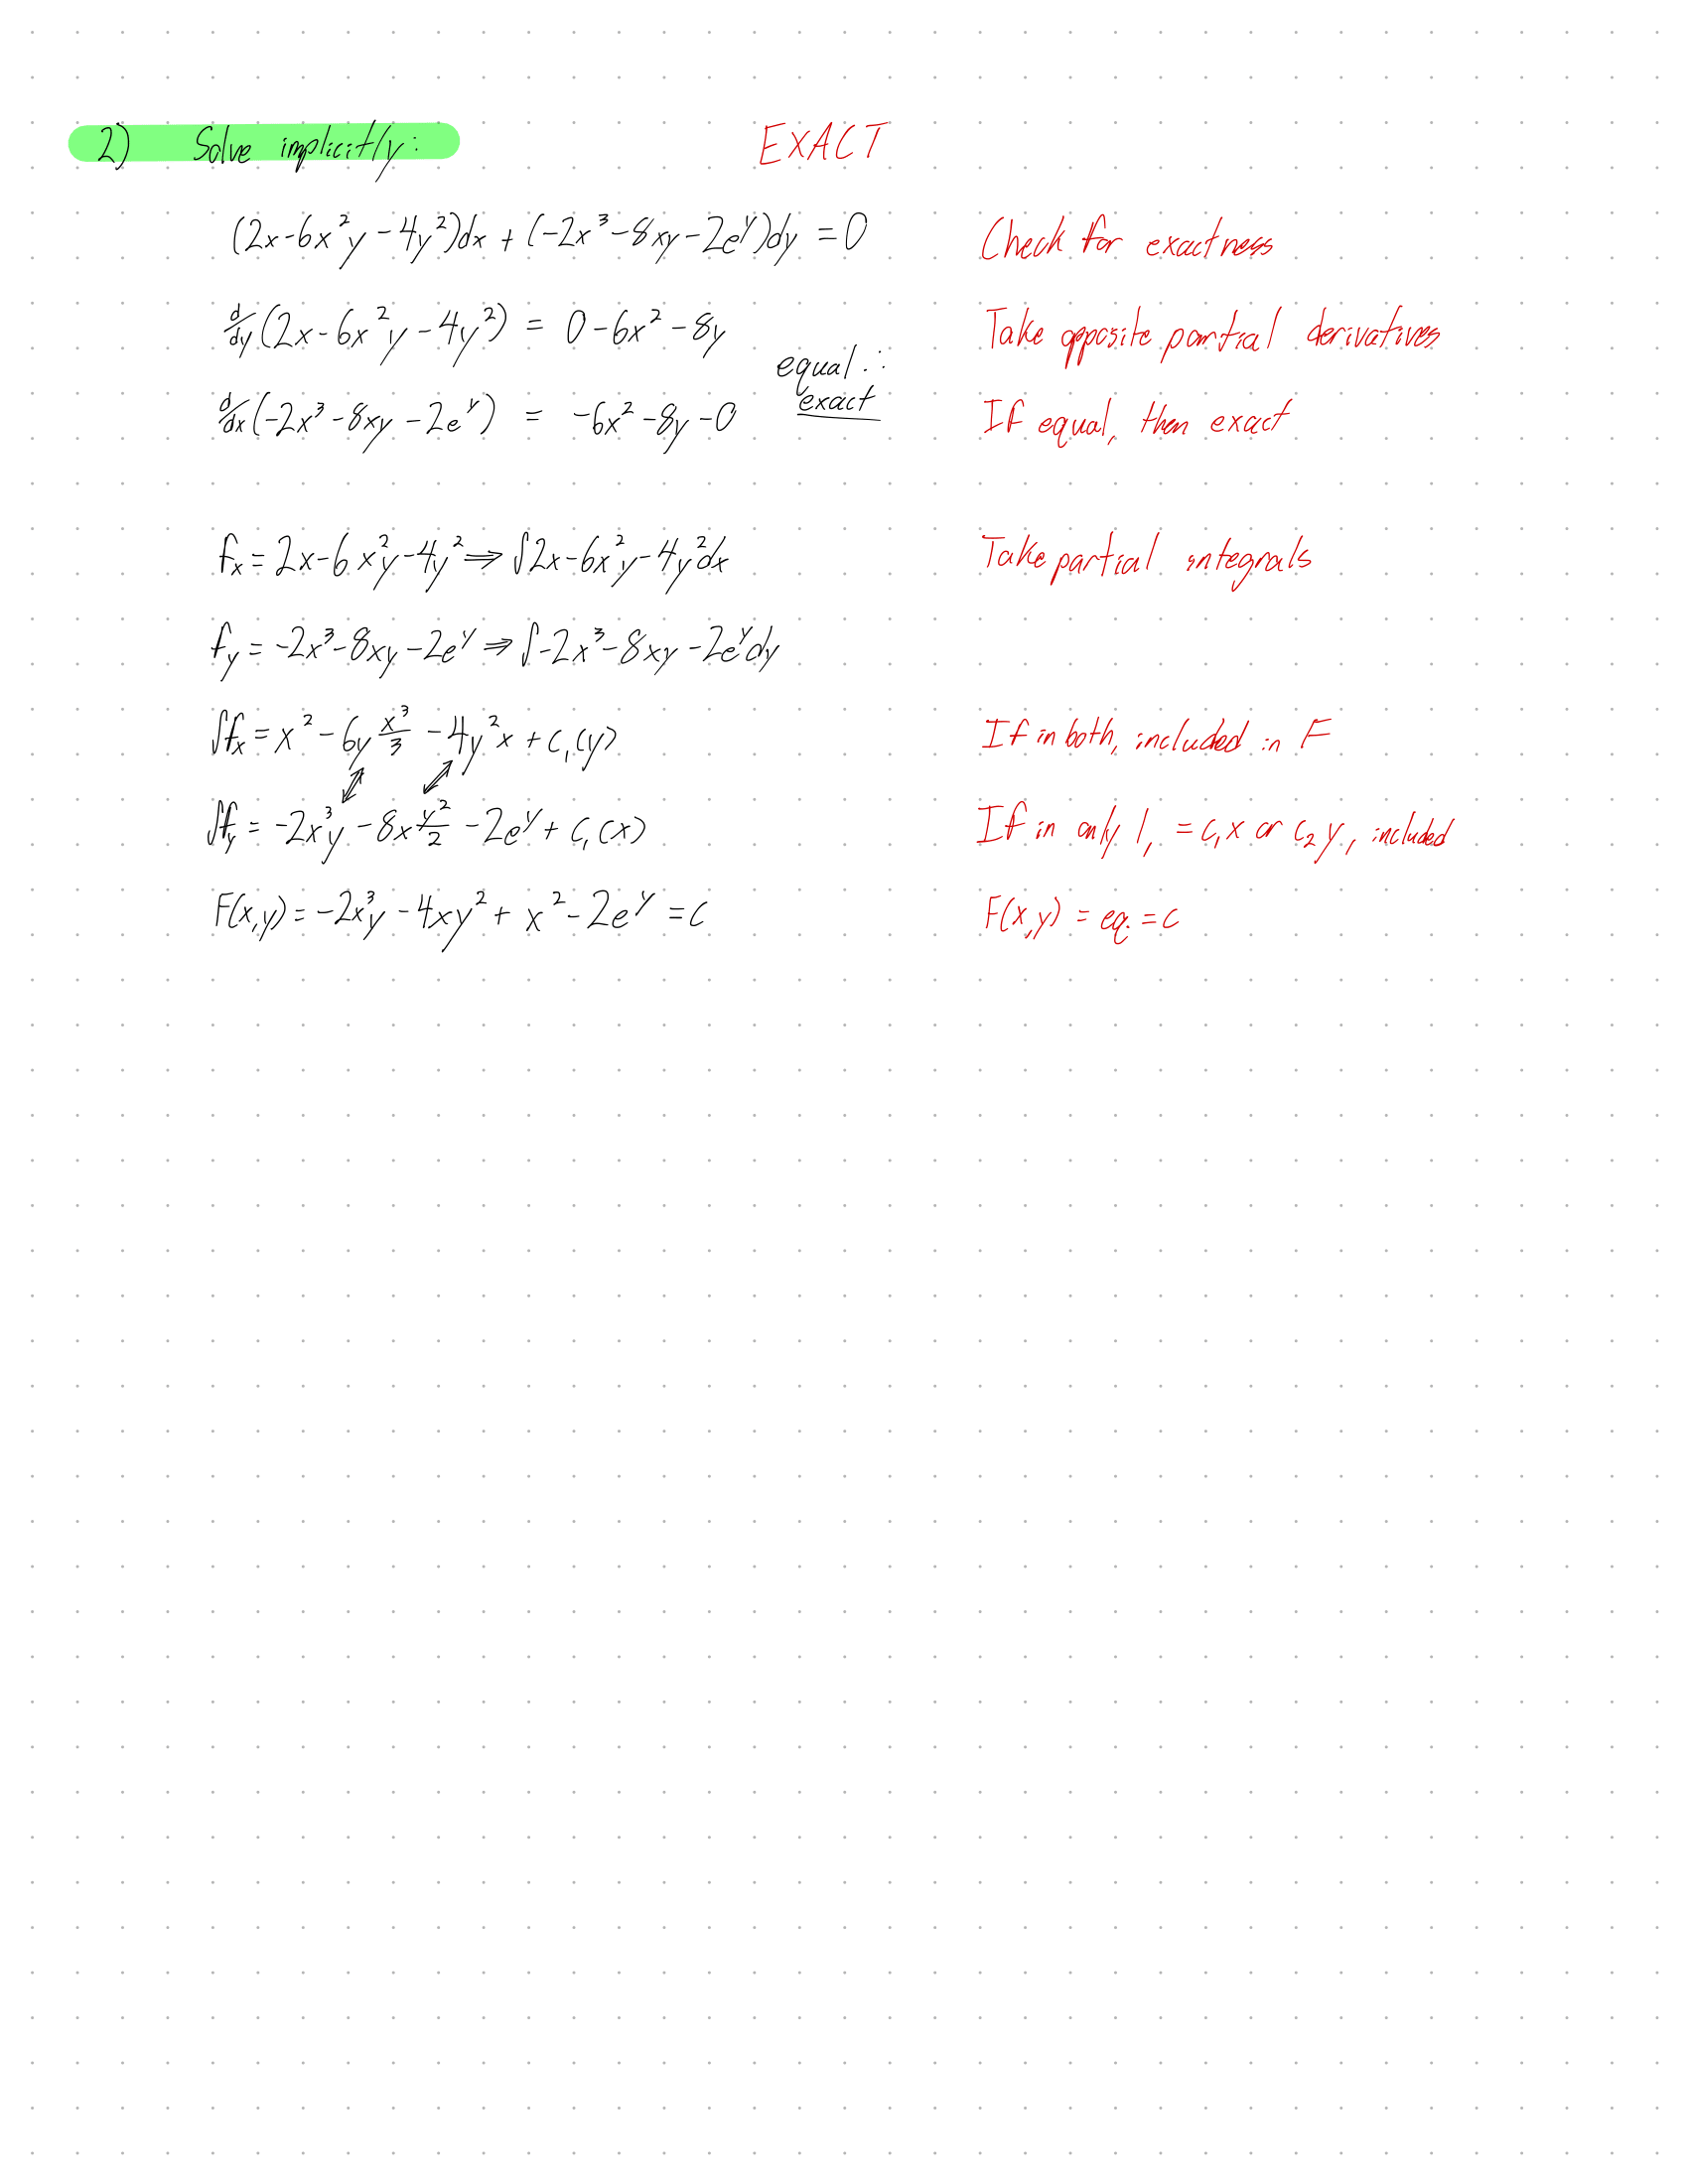 2) Solve implicitly: EXACT
(2x-6x²y-4y²)dx + (-2x³-8xy-2eʸ)dy = 0 Check for exactness
d/dy(2x-6x²y-4y²) = 0-6x²-8y Take opposite partial derivatives
equal ∴
exact
d/dx(-2x³-8xy-2eʸ) = -6x²-8y-0 If equal, then exact
fₓ = 2x-6x²y-4y² ⇒ ∫2x-6x²y-4y²dx Take partial integrals
f_y = -2x³-8xy-2eʸ ⇒ ∫-2x³-8xy-2eʸdy
∫fₓ = x² - 6y x³/3 - 4y²x + c₁(y) If in both, included in F
∫f_y = -2x³y - 8x y²/2 - 2eʸ + c₁(x) If in only 1, = c₁x or c₂y, included
F(x,y) = -2x³y - 4xy² + x² - 2eʸ = c F(x,y) = eq. = c